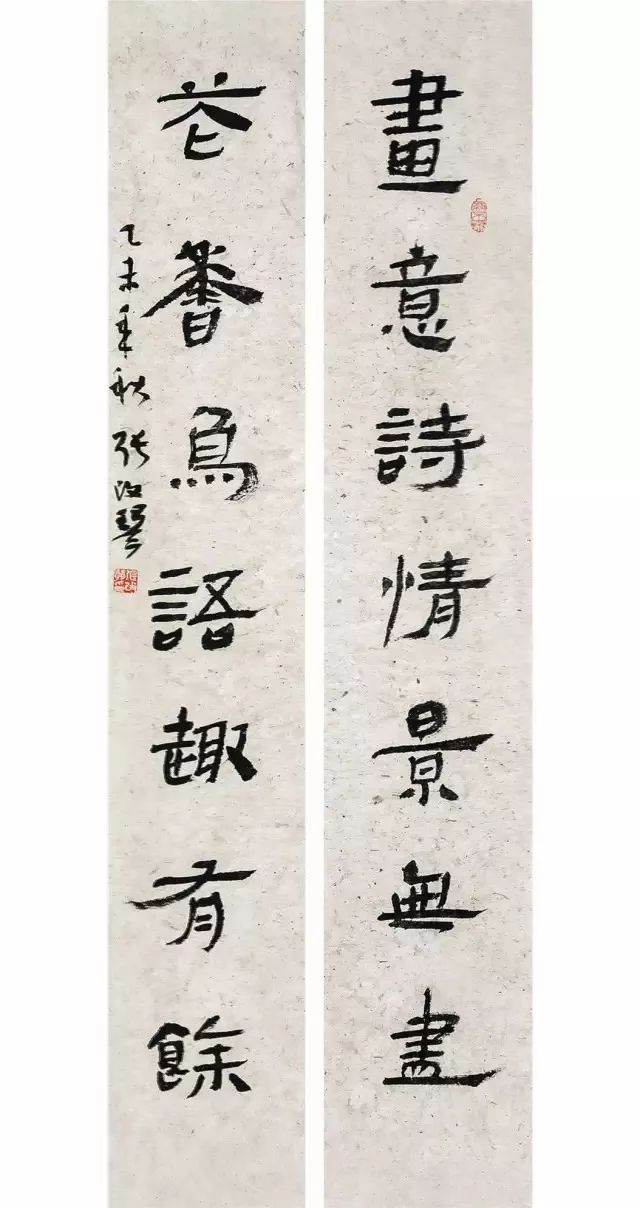 畫意詩情景無盡
花香鳥語趣有餘
乙未年秋張改琴